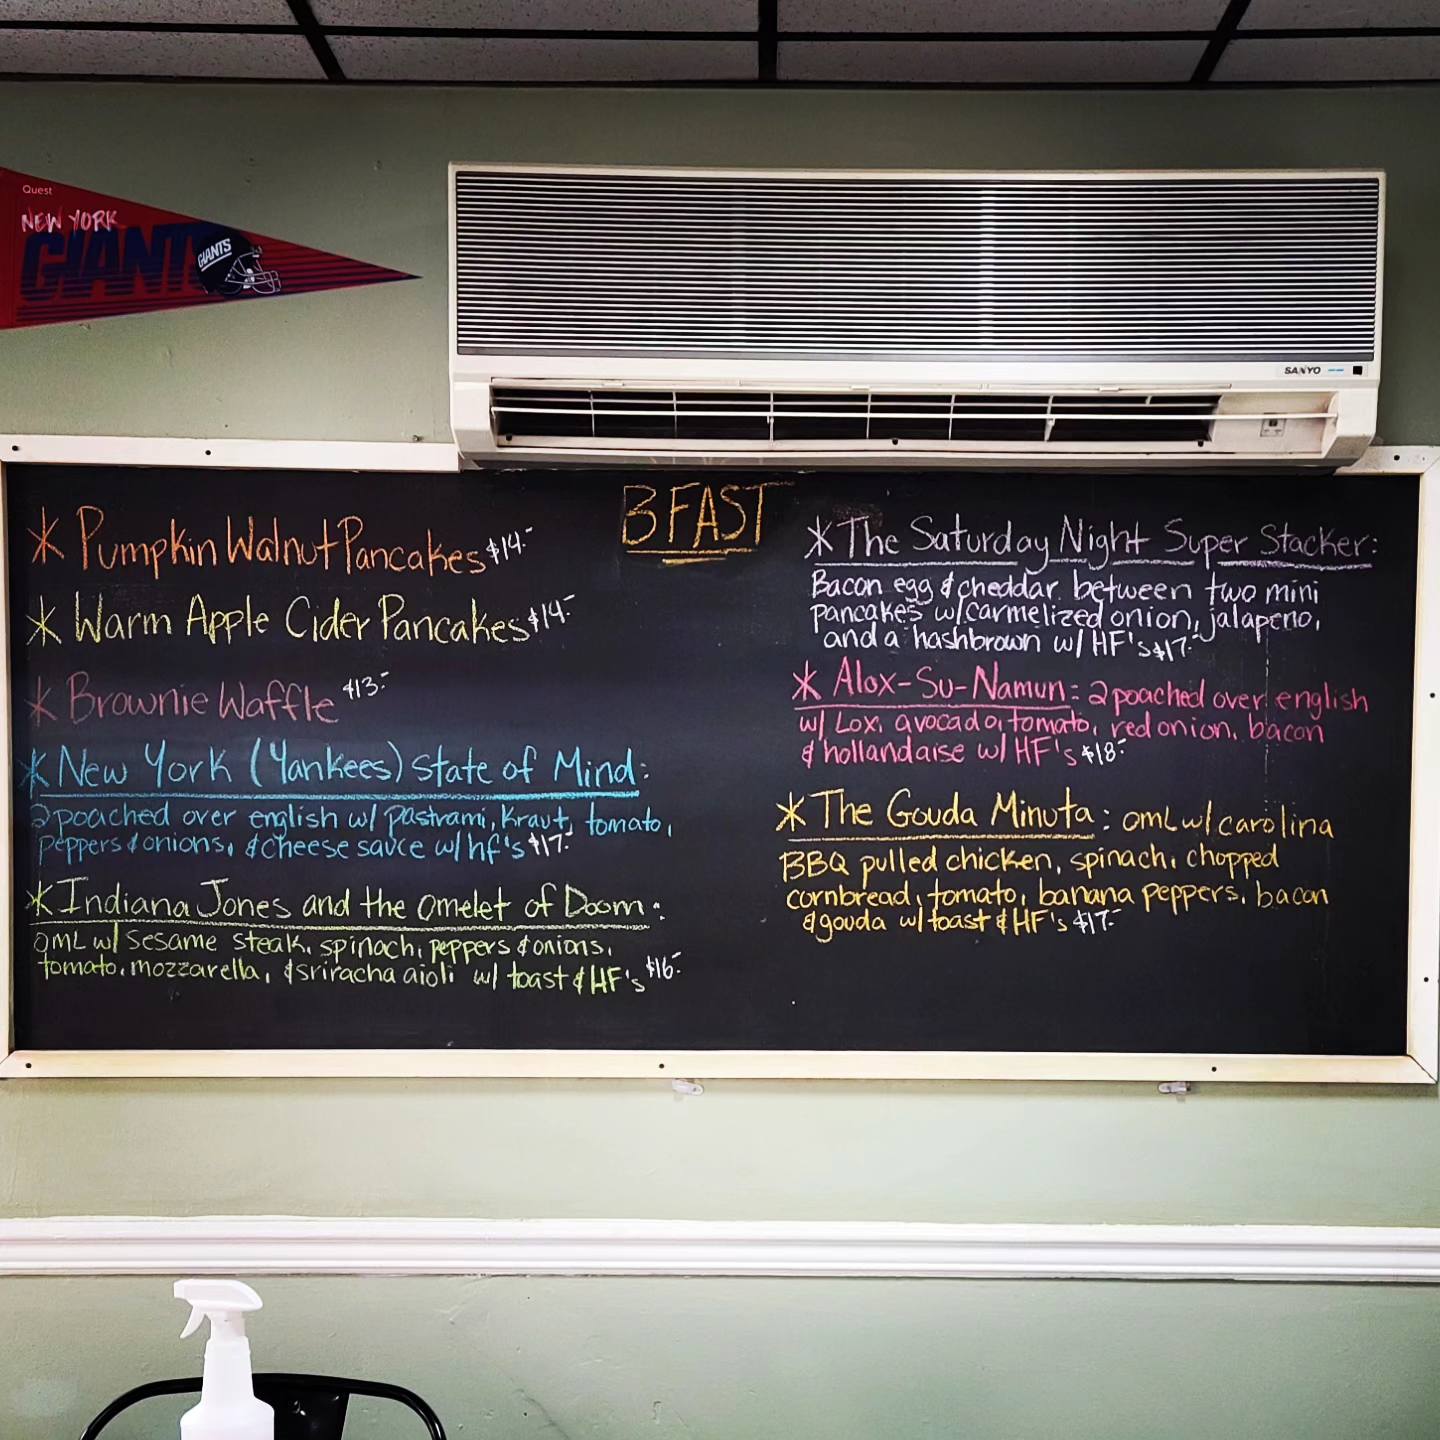 Quest
NEW YORK
GIANTS
GIANTS
SANYO
BFAST
* Pumpkin Walnut Pancakes $14.-
* Warm Apple Cider Pancakes $14.-
* Brownie Waffle $13.-
* New York (Yankees) State of Mind:
2 poached over english w/ pastrami, kraut, tomato,
peppers & onions, & cheese sauce w/ hf's $17.-
* Indiana Jones and the Omelet of Doom:
omL w/ sesame steak, spinach, peppers & onions,
tomato, mozzarella, & sriracha aioli w/ toast & HF's $16.-
* The Saturday Night Super Stacker:
Bacon egg & cheddar between two mini
pancakes w/ carmelized onion, jalapeno,
and a hashbrown w/ HF's $17.-
* Alox-Su-Namun: 2 poached over english
w/ Lox, avocado, tomato, red onion, bacon
& hollandaise w/ HF's $18.-
* The Gouda Minuta: omL w/ carolina
BBQ pulled chicken, spinach, chopped
cornbread, tomato, banana peppers, bacon
& gouda w/ toast & HF's $17.-